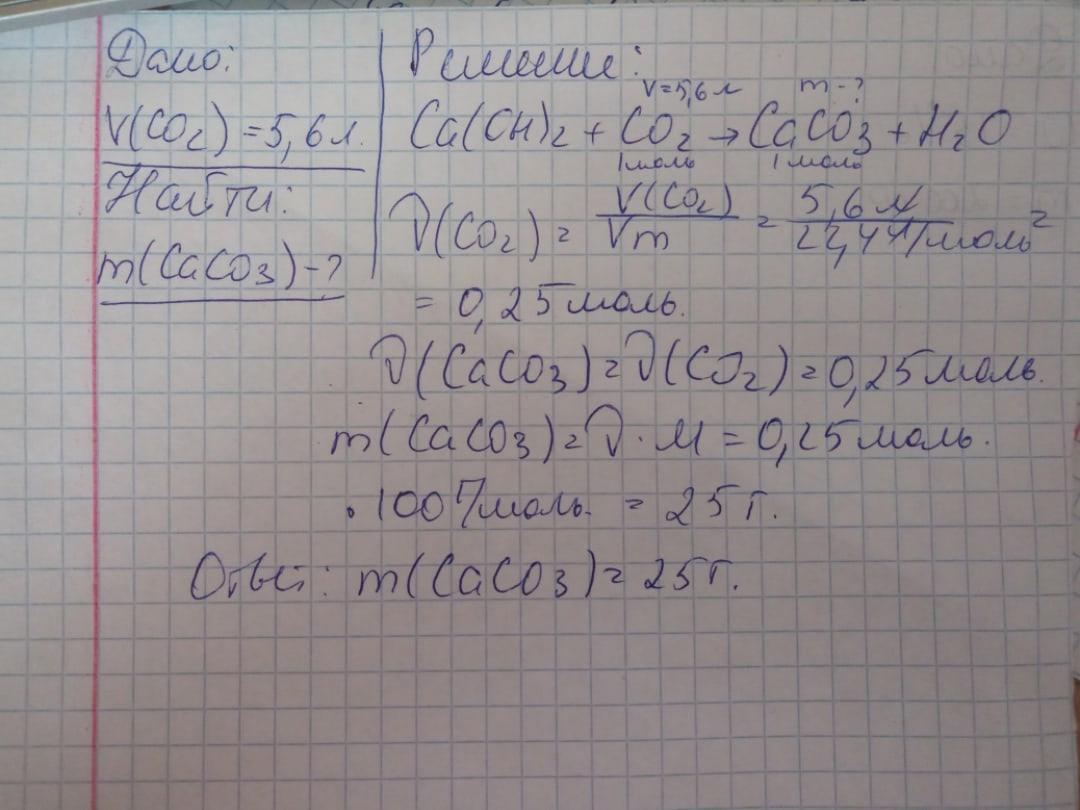 Дано:
V(CO2) = 5,6 л.
Найти:
m(CaCO3) - ?
Решение:
V = 5,6 л m - ?
Ca(OH)2 + CO2 → CaCO3 + H2O
1 моль 1 моль
ν(CO2) = V(CO2) / Vm = 5,6 л / 22,4 л/моль =
= 0,25 моль.
ν(CaCO3) = ν(CO2) = 0,25 моль.
m(CaCO3) = ν · M = 0,25 моль ·
· 100 г/моль = 25 г.
Ответ: m(CaCO3) = 25 г.